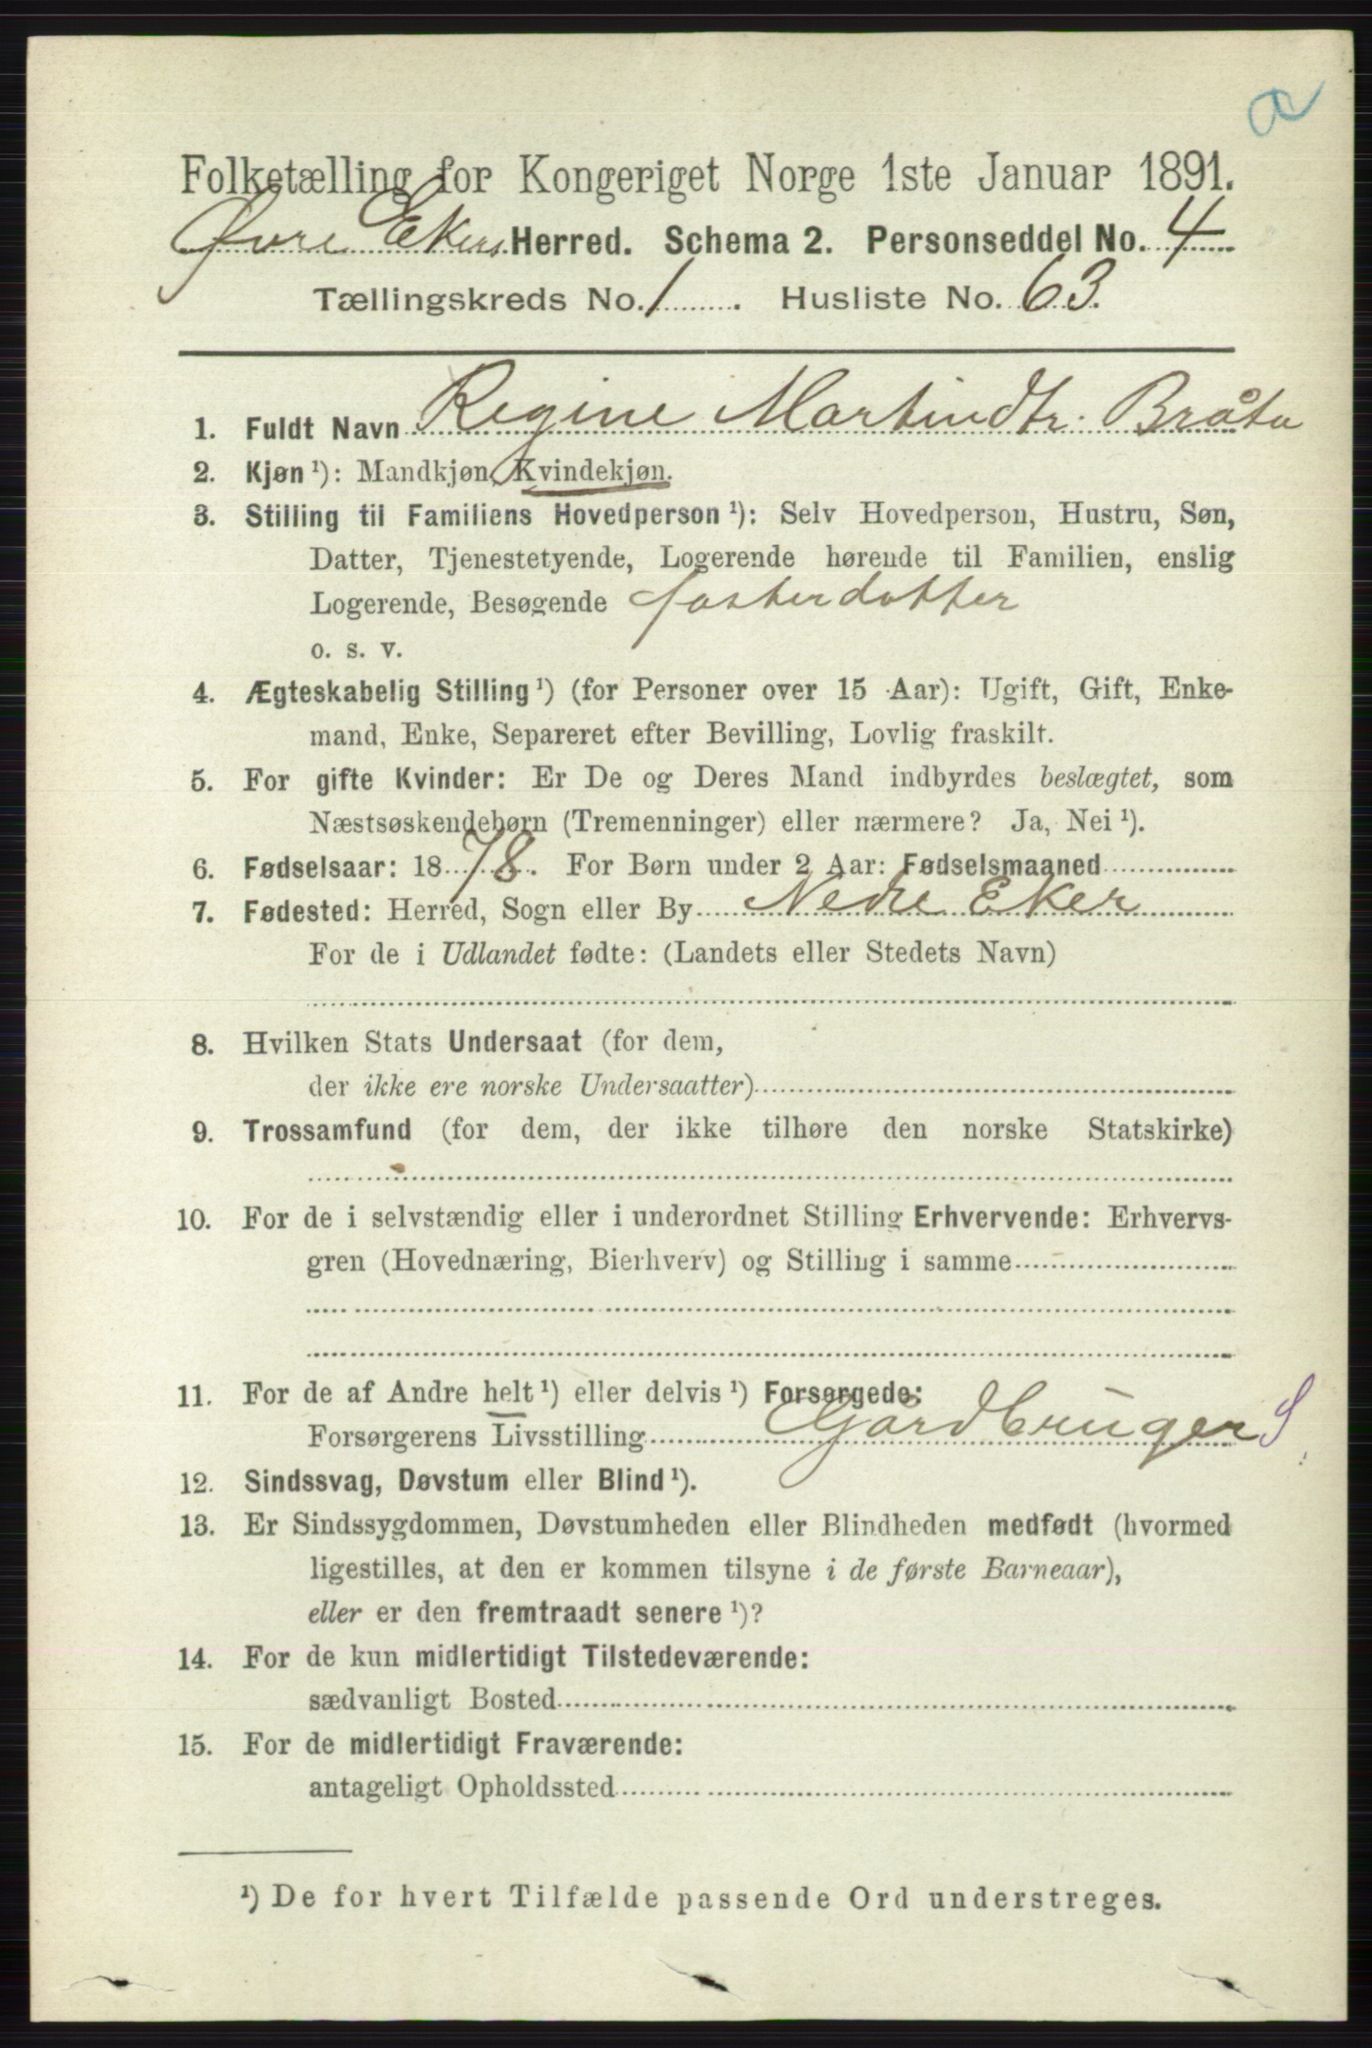 a
Folketælling for Kongeriget Norge 1ste Januar 1891.
Øvre Ekers Herred. Schema 2. Personseddel No. 4
Tællingskreds No. 1. Husliste No. 63.
1. Fuldt Navn Regine Martindtr. Bråta
2. Kjøn ¹): Mandkjøn, Kvindekjøn.
3. Stilling til Familiens Hovedperson ¹): Selv Hovedperson, Hustru, Søn,
Datter, Tjenestetyende, Logerende hørende til Familien, enslig
Logerende, Besøgende fosterdotter
o. s. v.
4. Ægteskabelig Stilling ¹) (for Personer over 15 Aar): Ugift, Gift, Enke-
mand, Enke, Separeret efter Bevilling, Lovlig fraskilt.
5. For gifte Kvinder: Er De og Deres Mand indbyrdes beslægtet, som
Næstsøskendebørn (Tremenninger) eller nærmere? Ja, Nei ¹).
6. Fødselsaar: 1878. For Børn under 2 Aar: Fødselsmaaned
7. Fødested: Herred, Sogn eller By Nedre Eker
For de i Udlandet fødte: (Landets eller Stedets Navn)
8. Hvilken Stats Undersaat (for dem,
der ikke ere norske Undersaatter)
9. Trossamfund (for dem, der ikke tilhøre den norske Statskirke)
10. For de i selvstændig eller i underordnet Stilling Erhvervende: Erhvervs-
gren (Hovednæring, Bierhverv) og Stilling i samme
11. For de af Andre helt ¹) eller delvis ¹) Forsørgede:
Forsørgerens Livsstilling Gårdbruger S
12. Sindssvag, Døvstum eller Blind ¹).
13. Er Sindssygdommen, Døvstumheden eller Blindheden medfødt (hvormed
ligestilles, at den er kommen tilsyne i de første Barneaar),
eller er den fremtraadt senere ¹)?
14. For de kun midlertidigt Tilstedeværende:
sædvanligt Bosted
15. For de midlertidigt Fraværende:
antageligt Opholdssted
¹) De for hvert Tilfælde passende Ord understreges.